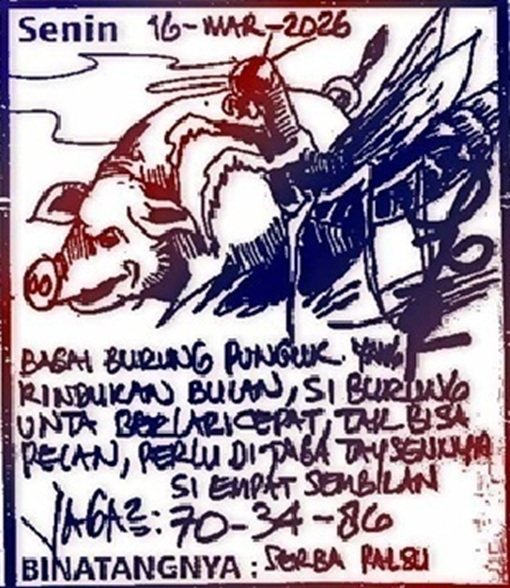 Senin 16-MAR-2026
BAGAI BURUNG PUNGGUK YANG
RINDUKAN BULAN, SI BURUNG
UNTA BERLARI CEPAT, TAK BISA
PELAN, PERLU DI JAGA TAYSENNYA
SI EMPAT SEMBILAN
JAGA2: 70-34-86
BINATANGNYA : SERBA PALSU